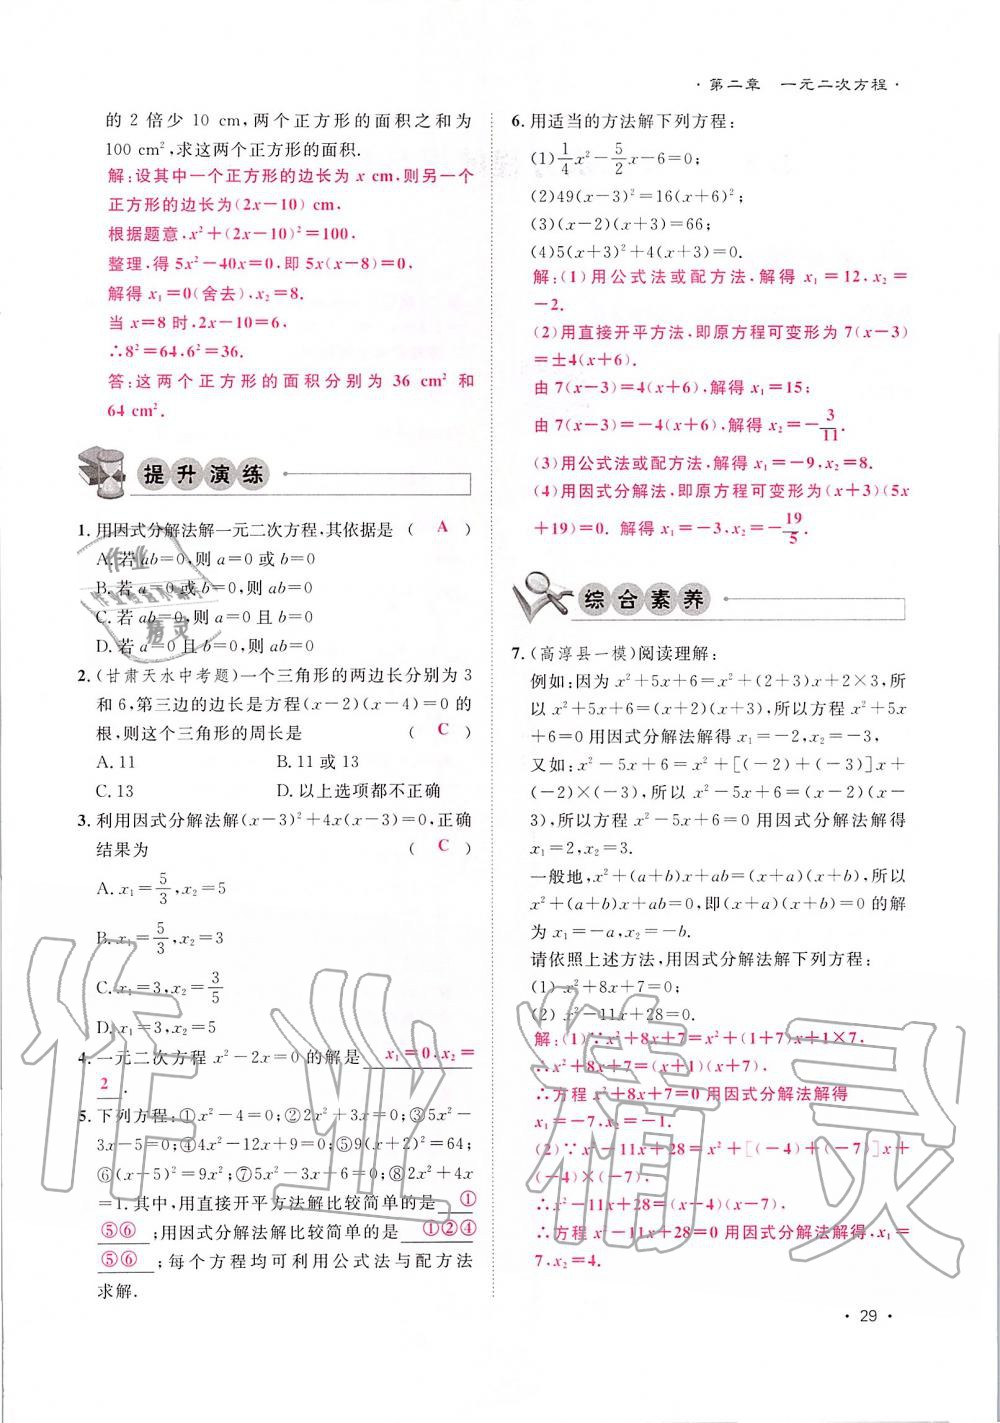 · 第二章　一元二次方程 ·
的 2 倍少 10 cm,两个正方形的面积之和为
100 cm²,求这两个正方形的面积.
解:设其中一个正方形的边长为 x cm,则另一个
正方形的边长为(2x－10) cm,
根据题意,x²＋(2x－10)²＝100,
整理,得 5x²－40x＝0,即 5x(x－8)＝0,
解得 x₁＝0(舍去),x₂＝8.
当 x＝8 时,2x－10＝6,
∴8²＝64,6²＝36.
答:这两个正方形的面积分别为 36 cm² 和
64 cm².
提升演练
1. 用因式分解法解一元二次方程,其依据是 ( A )
A. 若 ab＝0,则 a＝0 或 b＝0
B. 若 a＝0 或 b＝0,则 ab＝0
C. 若 ab＝0,则 a＝0 且 b＝0
D. 若 a＝0 且 b＝0,则 ab＝0
2. (甘肃天水中考题)一个三角形的两边长分别为 3
和 6,第三边的边长是方程(x－2)(x－4)＝0 的
根,则这个三角形的周长是 ( C )
A. 11 B. 11 或 13
C. 13 D. 以上选项都不正确
3. 利用因式分解法解(x－3)²＋4x(x－3)＝0,正确
结果为 ( C )
A. x₁＝5/3,x₂＝5
B. x₁＝5/3,x₂＝3
C. x₁＝3,x₂＝3/5
D. x₁＝3,x₂＝5
4. 一元二次方程 x²－2x＝0 的解是 x₁＝0,x₂＝
2 .
5. 下列方程:①x²－4＝0;②2x²＋3x＝0;③5x²－
3x－5＝0;④4x²－12x＋9＝0;⑤9(x＋2)²＝64;
⑥(x－5)²＝9x²;⑦5x²－3x－1＝0;⑧2x²＋4x
＝1. 其中,用直接开平方法解比较简单的是 ①
⑤⑥ ;用因式分解法解比较简单的是 ①②④
⑤⑥ ;每个方程均可利用公式法与配方法
求解.
6. 用适当的方法解下列方程:
(1)1/4x²－5/2x－6＝0;
(2)49(x－3)²＝16(x＋6)²;
(3)(x－2)(x＋3)＝66;
(4)5(x＋3)²＋4(x＋3)＝0.
解:(1)用公式法或配方法,解得 x₁＝12,x₂＝
－2.
(2)用直接开平方法,即原方程可变形为 7(x－3)
＝±4(x＋6).
由 7(x－3)＝4(x＋6),解得 x₁＝15;
由 7(x－3)＝－4(x＋6),解得 x₂＝－3/11.
(3)用公式法或配方法,解得 x₁＝－9,x₂＝8.
(4)用因式分解法,原方程可变形为(x＋3)(5x
＋19)＝0. 解得 x₁＝－3,x₂＝－19/5.
综合素养
7. (高淳县一模)阅读理解:
例如:因为 x²＋5x＋6＝x²＋(2＋3)x＋2×3,所
以 x²＋5x＋6＝(x＋2)(x＋3),所以方程 x²＋5x
＋6＝0 用因式分解法解得 x₁＝－2,x₂＝－3,
又如:x²－5x＋6＝x²＋[(－2)＋(－3)]x＋
(－2)×(－3),所以 x²－5x＋6＝(x－2)(x－
3),所以方程 x²－5x＋6＝0 用因式分解法解得
x₁＝2,x₂＝3.
一般地,x²＋(a＋b)x＋ab＝(x＋a)(x＋b),所以
x²＋(a＋b)x＋ab＝0,即(x＋a)(x＋b)＝0 的解
为 x₁＝－a,x₂＝－b.
请依照上述方法,用因式分解法解下列方程:
(1) x²＋8x＋7＝0;
(2) x²－11x＋28＝0.
解:(1)∵x²＋8x＋7＝x²＋(1＋7)x＋1×7,
∴x²＋8x＋7＝(x＋1)(x＋7).
∴方程 x²＋8x＋7＝0 用因式分解法解得
x₁＝－7,x₂＝－1.
(2)∵x²－11x＋28＝x²＋[(－4)＋(－7)]x＋
(－4)×(－7),
∴x²－11x＋28＝(x－4)(x－7).
∴方程 x²－11x＋28＝0 用因式分解法解得,x₁＝
7,x₂＝4.
· 29 ·
作业精灵